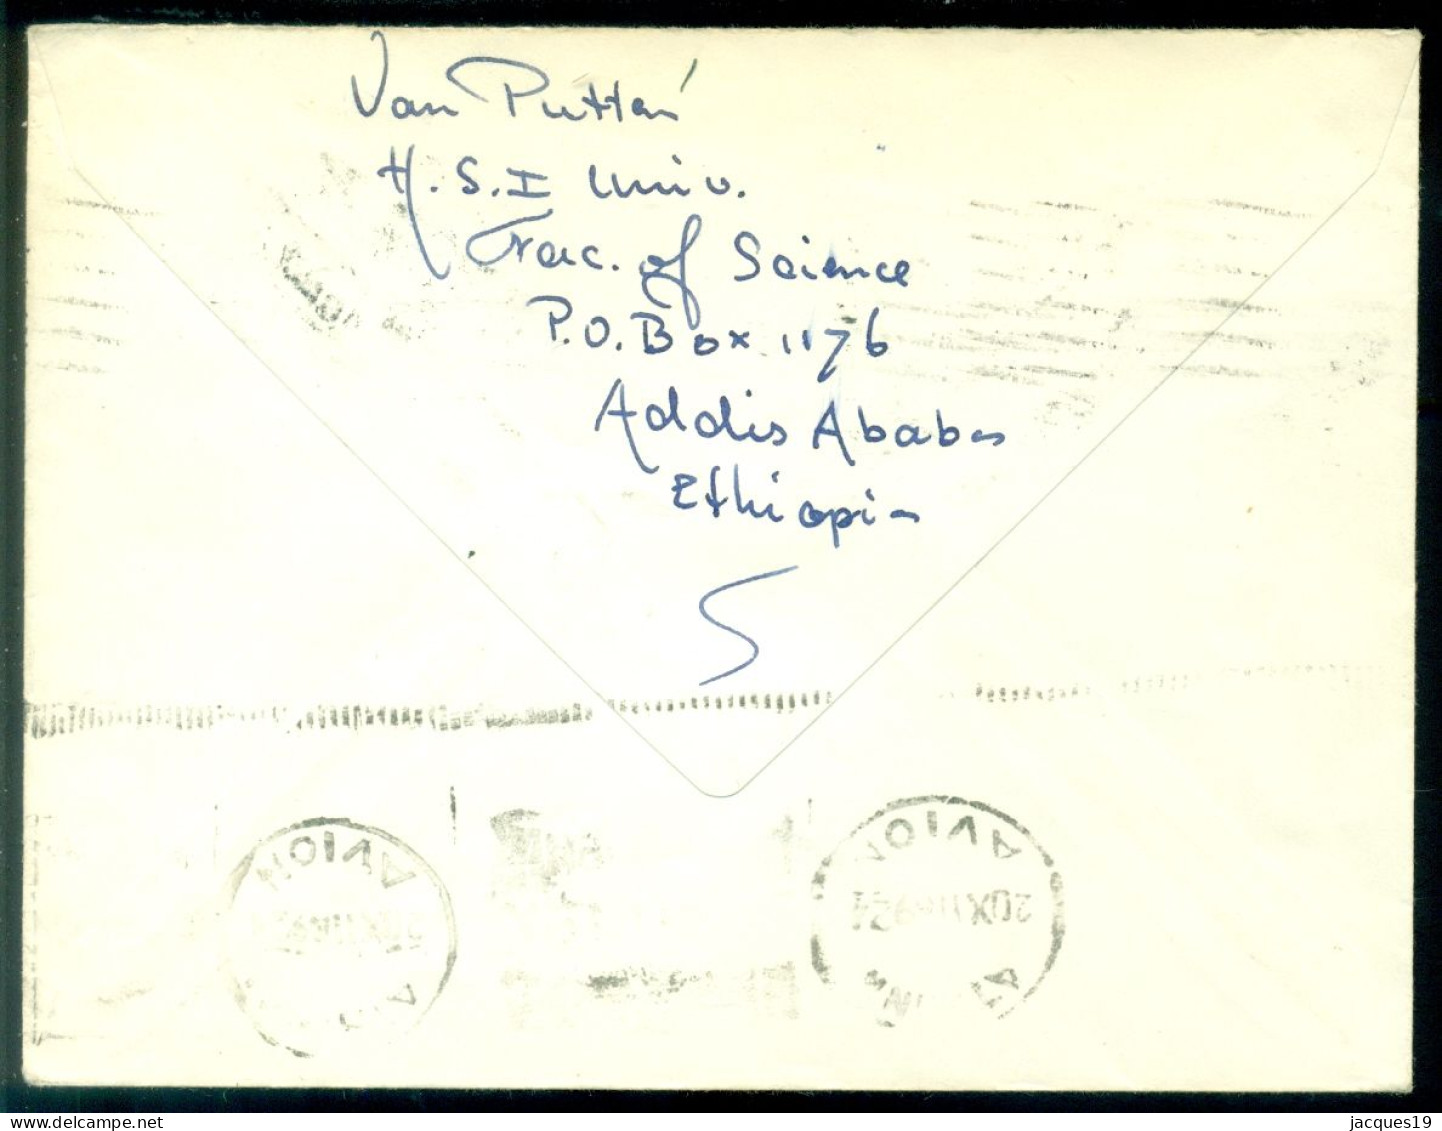 Van Putten
H.S.I Univ.
Fac. of Science
P.O. Box 1176
Addis Ababa
Ethiopia
AVION
AVION
20 XII
delcampe.net
jacques19